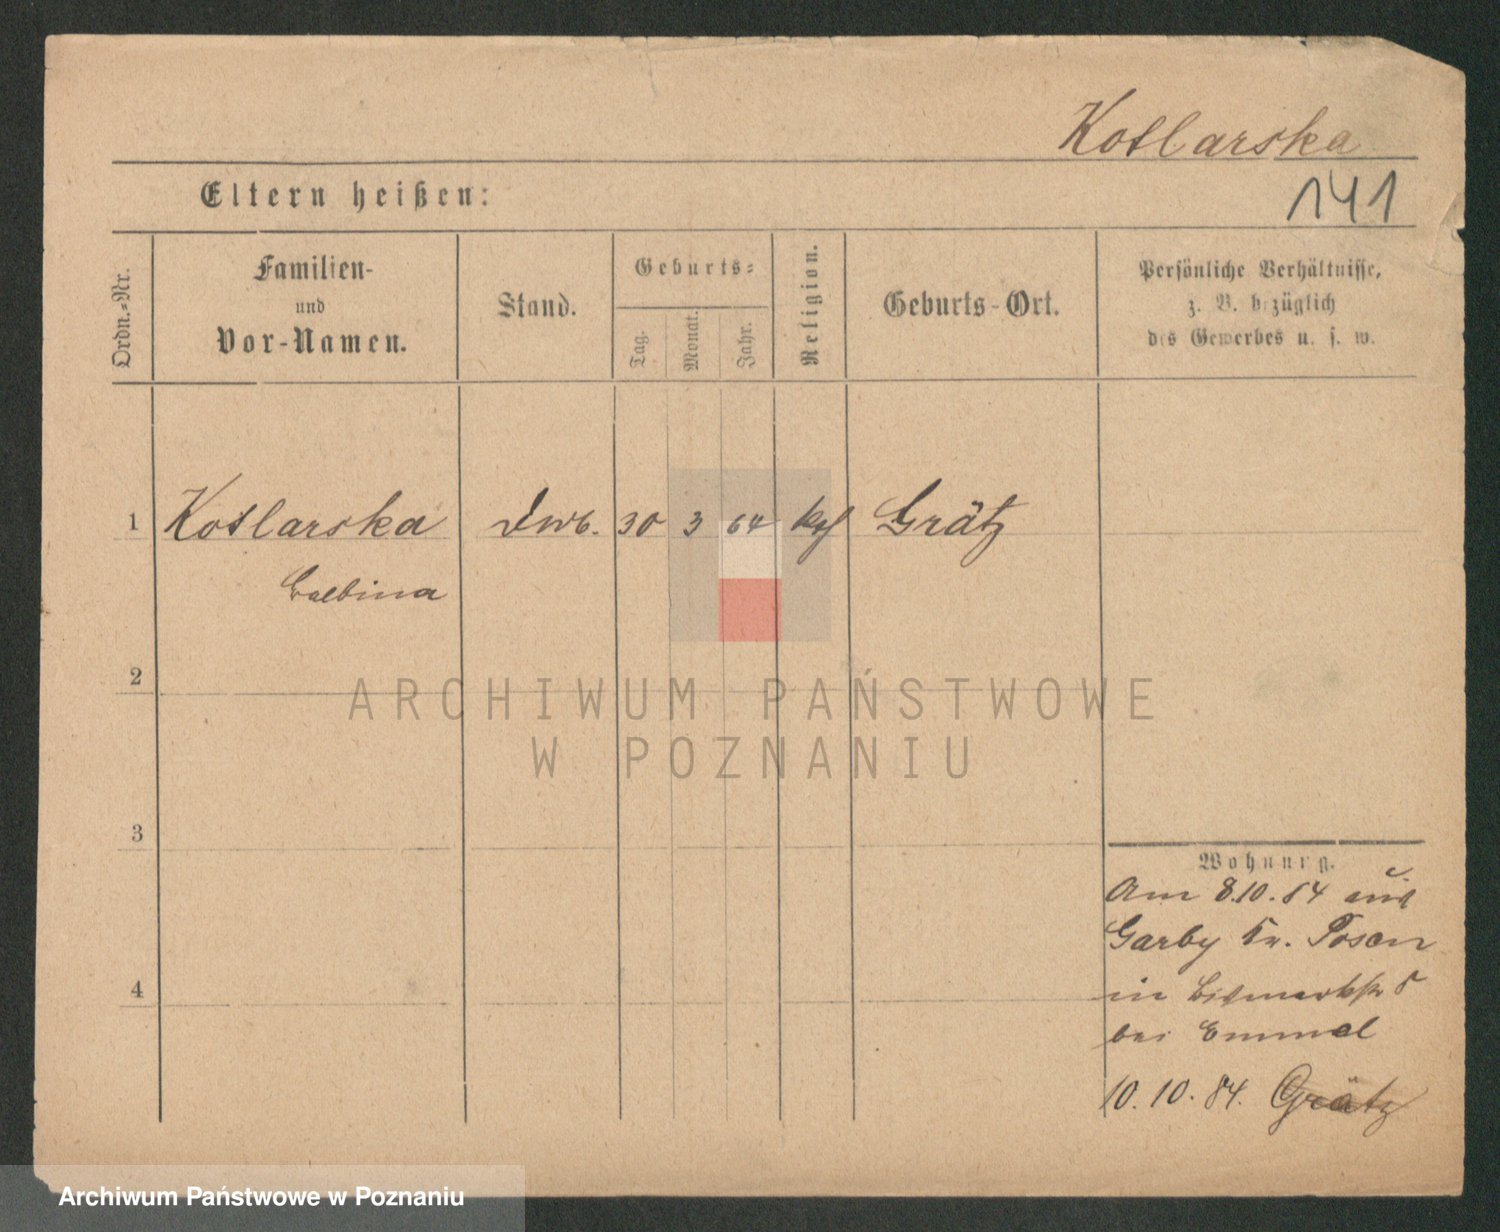 Kotlarska
Eltern heißen:
141
Ordn.-Nr.
Familien-
und
Vor-Namen.
Stand.
Geburts-
Tag.
Monat.
Jahr.
Religion.
Geburts-Ort.
Persönliche Verhältnisse,
z. B. bezüglich
des Gewerbes u. s. w.
1 Kotlarska 30 3 64 Grätz
Balbina
2
ARCHIWUM PAŃSTWOWE
W POZNANIU
3
Wohnung.
Am 8.10.84 aus
Garby Kr. Posen
4
in Bismarkstr 8
bei Emmel
10.10.84. Grätz
Archiwum Państwowe w Poznaniu